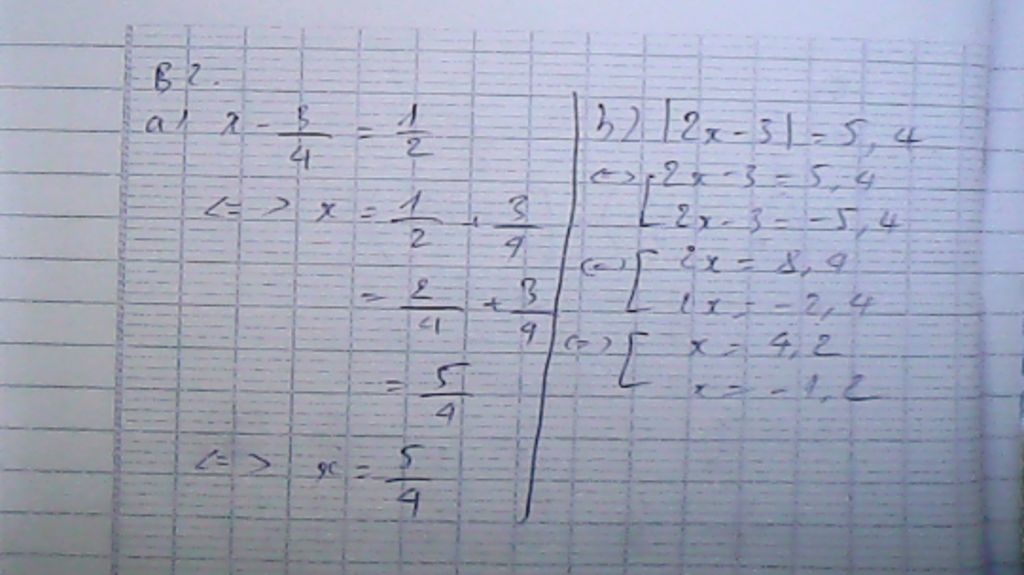 B2.
a) x - 3/4 = 1/2
<=> x = 1/2 + 3/4
= 2/4 + 3/4
= 5/4
<=> x = 5/4
b) |2x - 3| = 5,4
<=> [ 2x - 3 = 5,4
2x - 3 = -5,4
<=> [ 2x = 8,4
2x = -2,4
<=> [ x = 4,2
x = -1,2